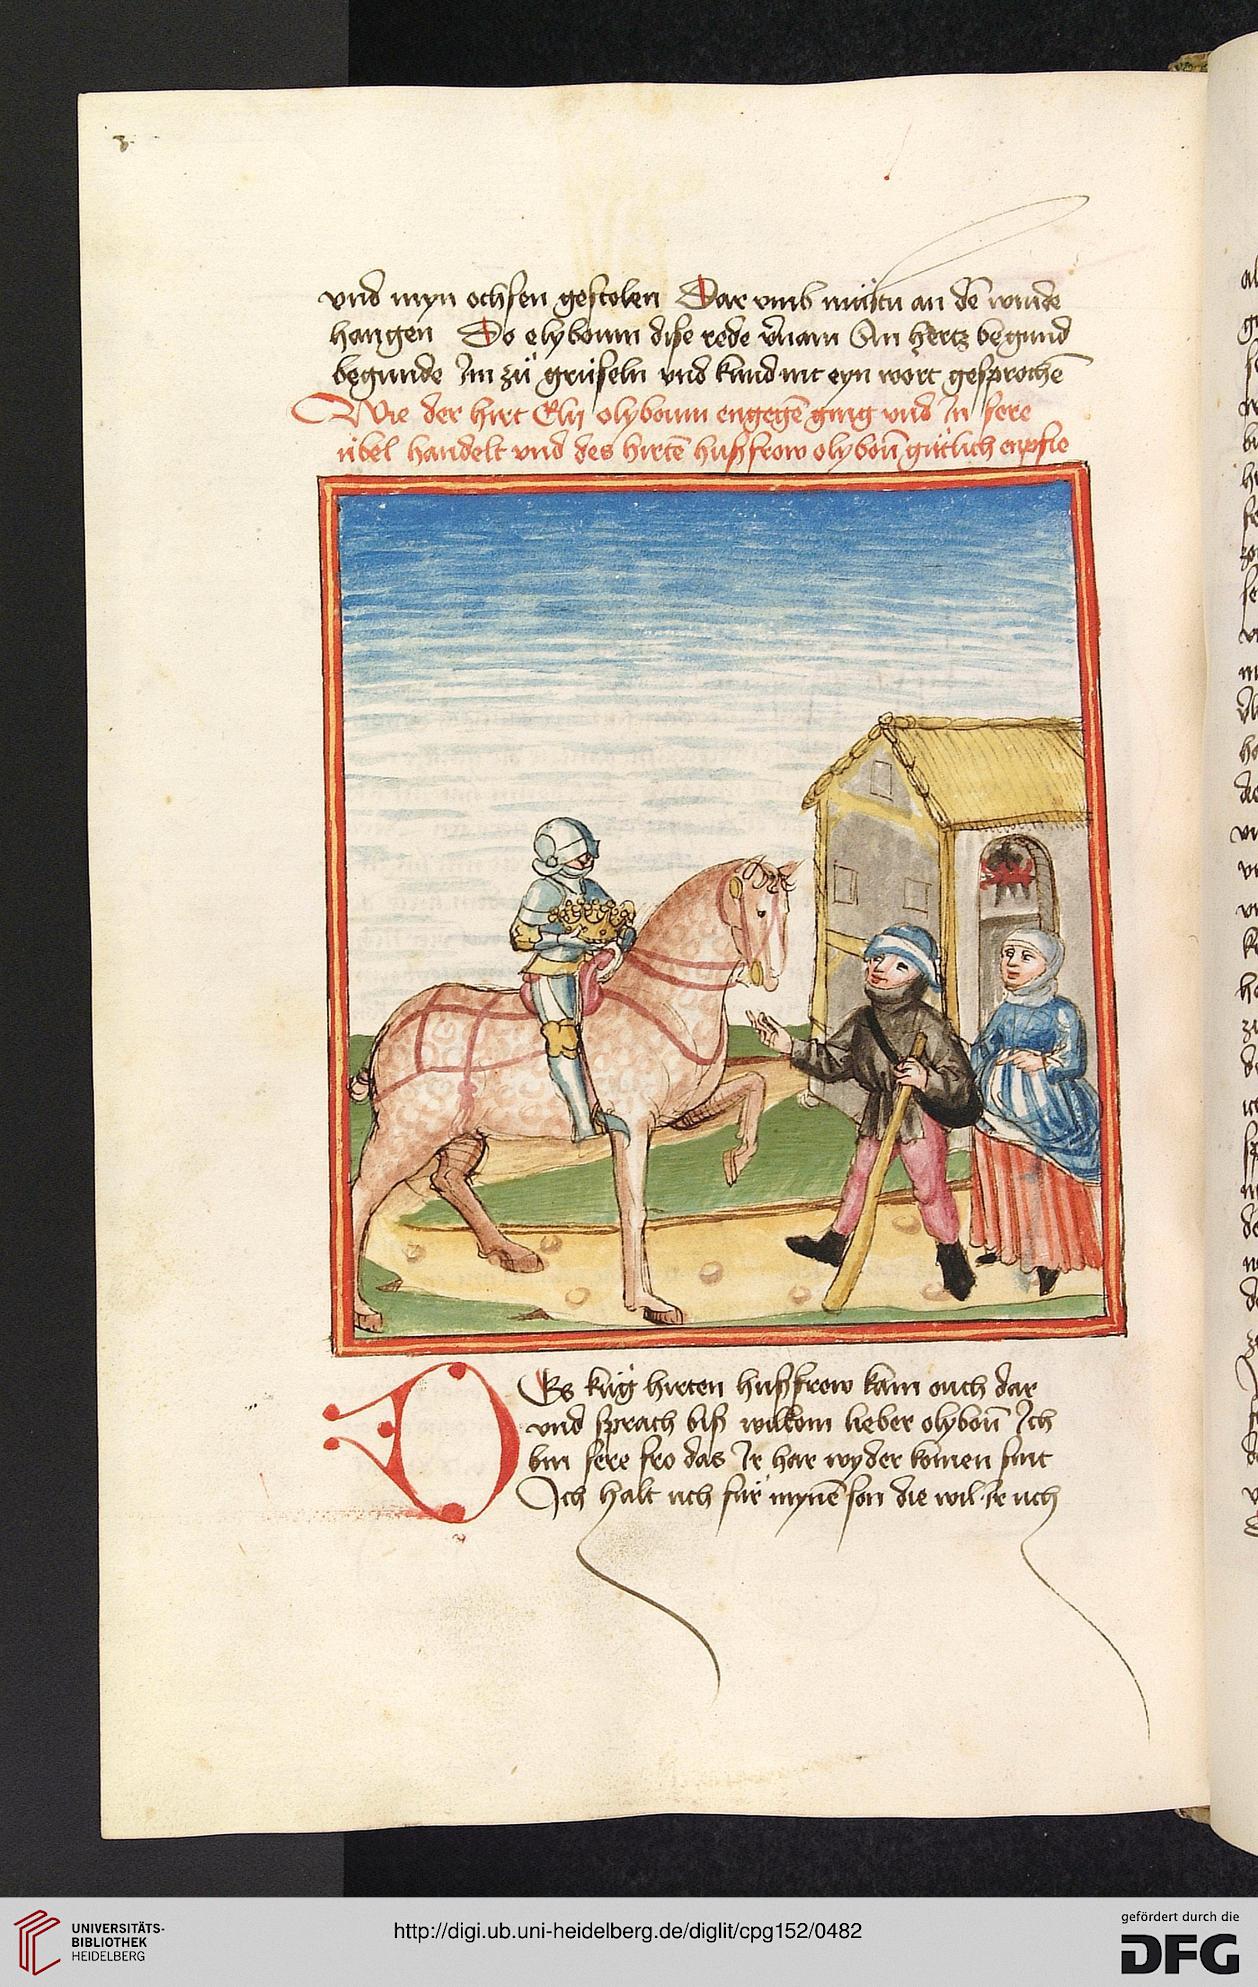 vnd myn ochsen gestolen Dar vmb müstu an dē winde
hangen Do olyboum dise rede v̄nam Sin hertz begund
begunde Jm zü grüseln vnd kund nit eyn wort gesprochē
Wie der hirt Ely olyboum engegē ging vnd Jn sere
übel handelt vnd des hirtē hußfrow olyboū gütlich enpfie
Des küg hirten hußfrow kam ouch dar
vnd sprach biß wilkom lieber olyboū Jch
bin sere fro das Jr har wyder komen sint
Jch halt uch für mynē son die wil Jr uch
UNIVERSITÄTS-
BIBLIOTHEK
HEIDELBERG
http://digi.ub.uni-heidelberg.de/diglit/cpg152/0482
gefördert durch die
DFG